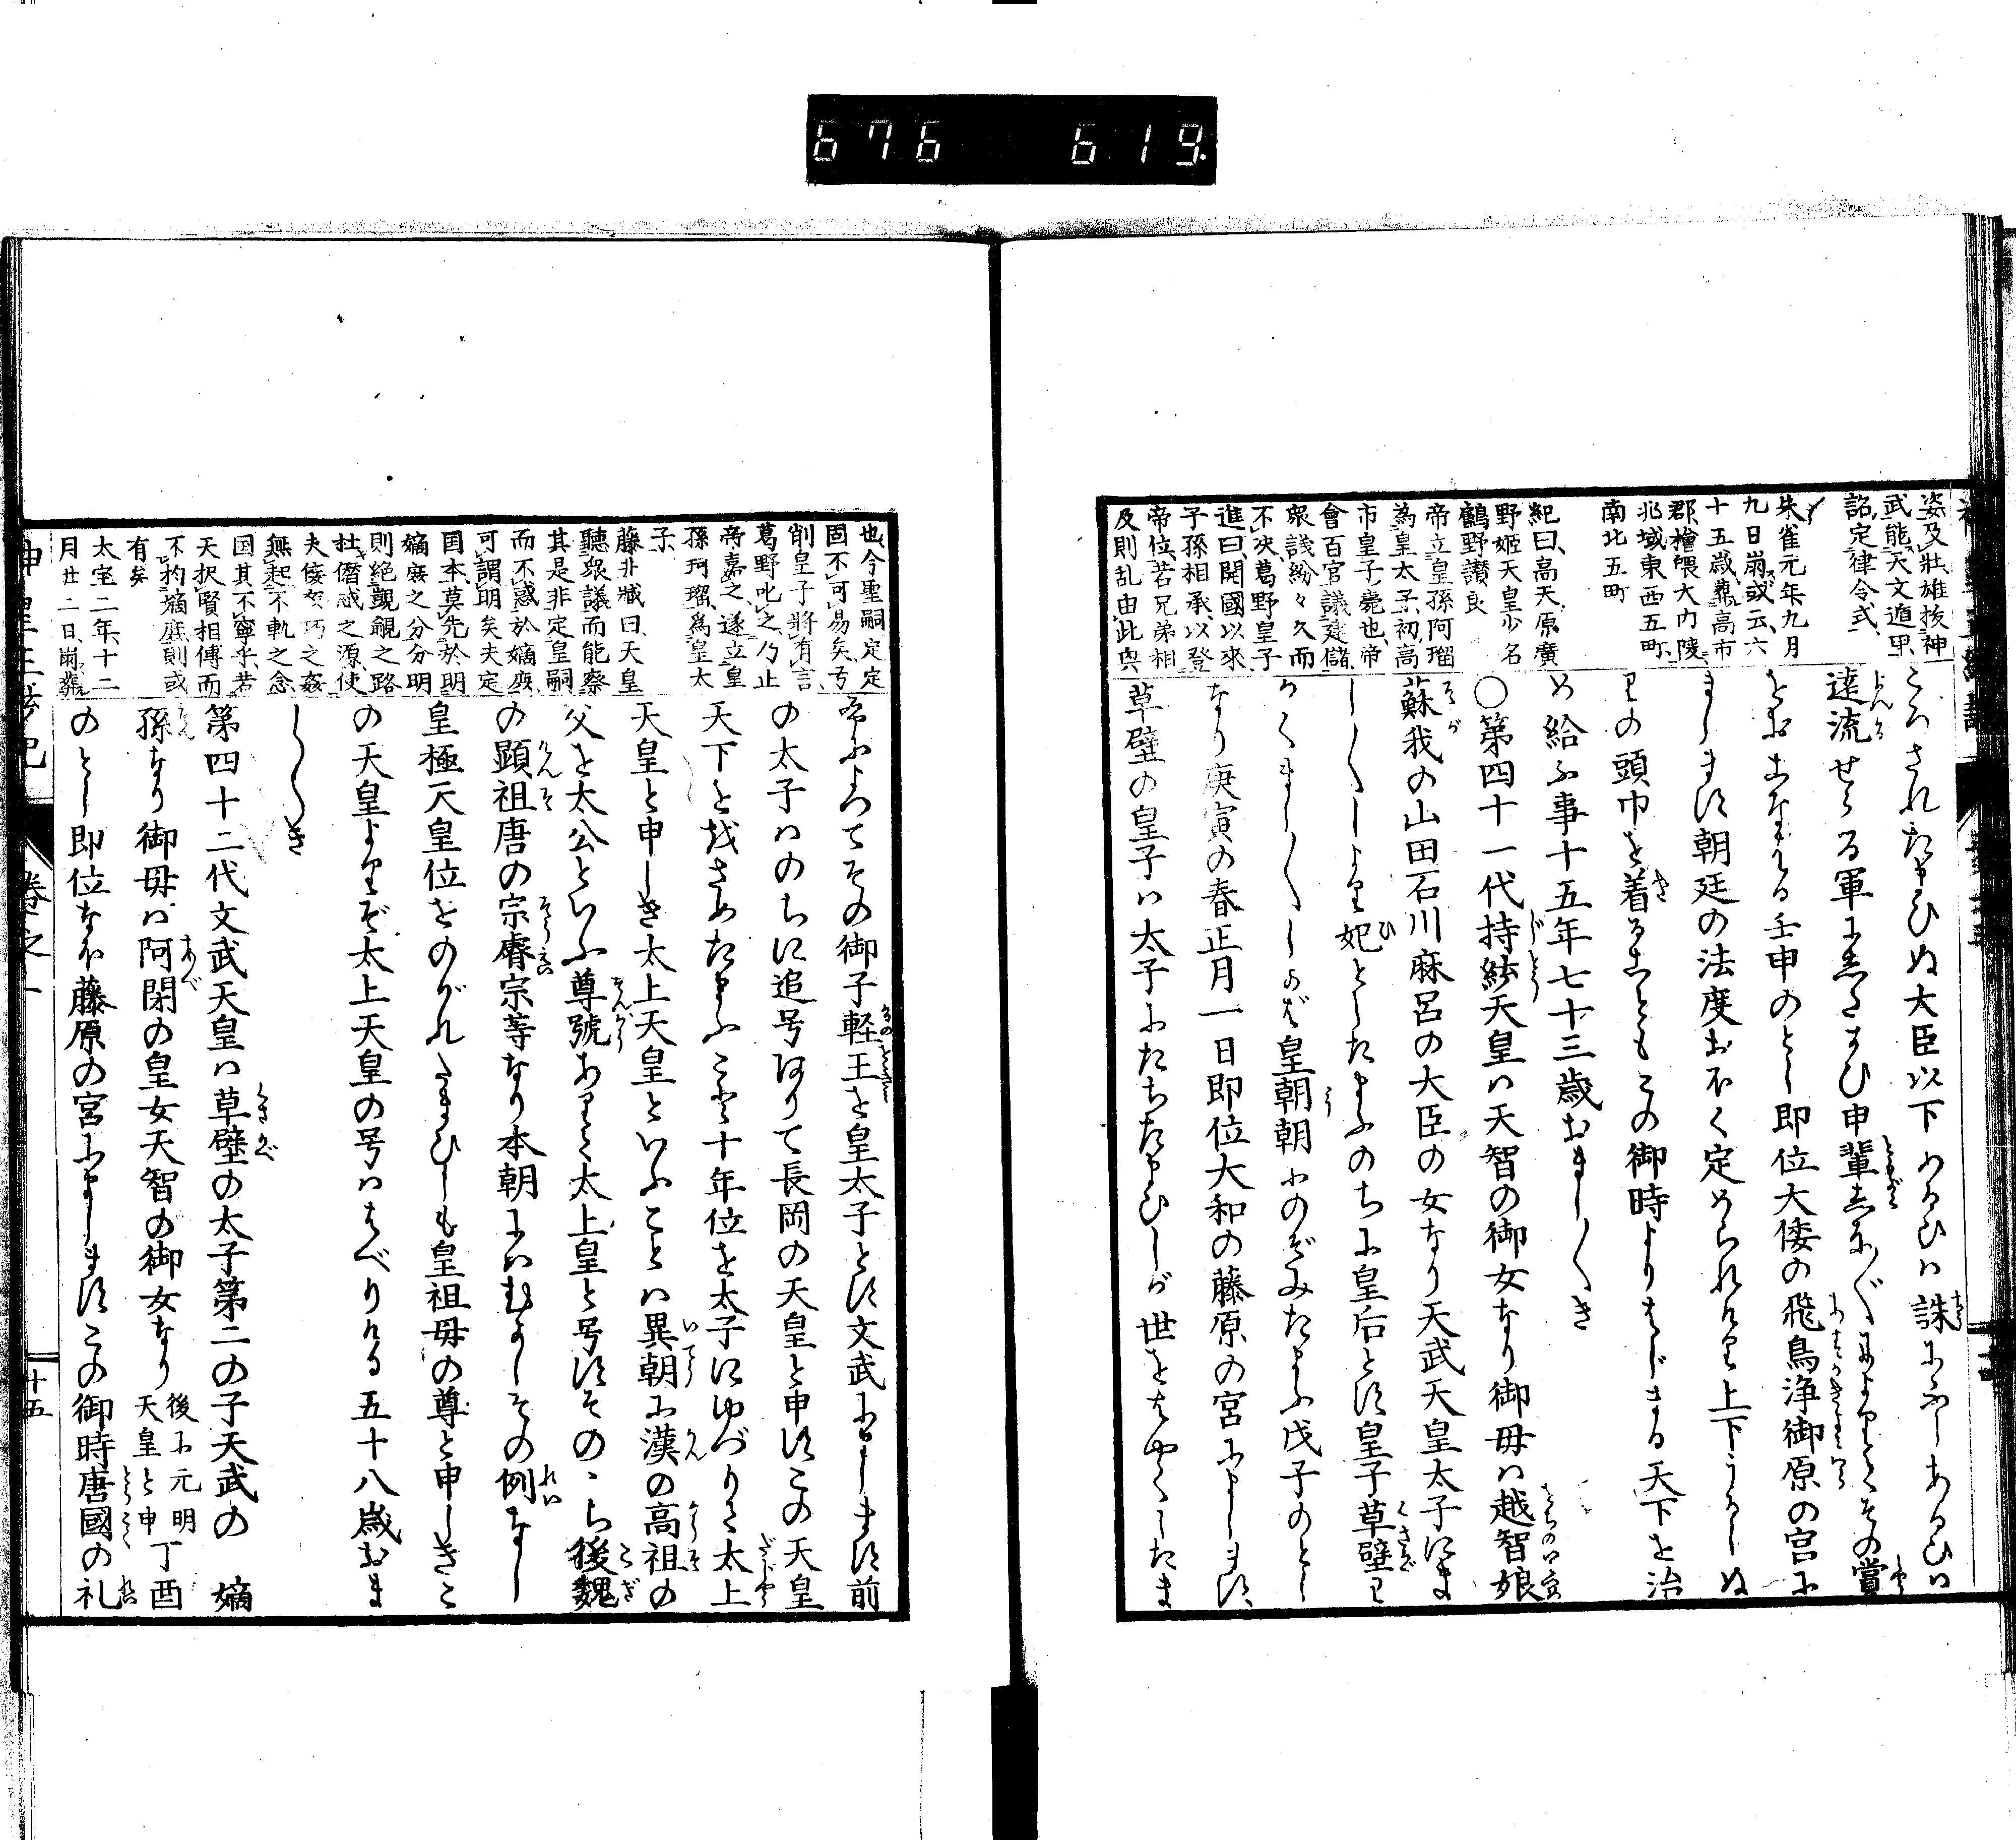 676 619.
姿及壯雄抜神
武能天文遁甲
詔定律令式
朱雀元年九月
九日崩或云六
十五歳葬高市
郡檜隈大内陵
兆域東西五町
南北五町
紀曰高天原廣
野姫天皇少名
鸕野讃良
帝立皇孫阿瑠
為皇太子初高
市皇子薨也帝
會百官議建儲
衆議紛々久而
不决葛野皇子
進曰開國以來
子孫相承以登
帝位若兄弟相
及則乱由此興
ころされたまひぬ大臣以下あるひは誅にふしあるひは
遠流せらる軍にしたかひ申輩しな〴〵によりてその賞
をおこなはる壬申のとし即位大倭の飛鳥浄御原の宮に
まします朝廷の法度おほく定められにけり上下うるしぬ
りの頭巾を着ることもこの御時よりはじまる天下を治
め給ふ事十五年七十三歳おまし〳〵き
〇第四十一代持統天皇は天智の御女なり御母は越智娘
蘇我の山田石川麻呂の大臣の女なり天武天皇太子にま
し〳〵しより妃としたまふのちに皇后とす皇子草壁わ
かくまし〳〵しかば皇朝朝にのぞみたまふ戊子のとし
なり庚寅の春正月一日即位大和の藤原の宮にまします
草壁の皇子は太子にたちたまひしが世をはやくしたま
也今聖嗣定定
固不可易矣弓
削皇子将有言
葛野叱之乃止
帝嘉之遂立皇
孫珂瑠為皇太
子
藤井臧曰天皇
聽衆議而能察
其是非定皇嗣
而不惑於嫡庶
可謂明矣夫定
国本莫先於明
嫡庶之分分明
則絶覬覦之路
杜僭惑之源使
夫倭奴巧之姦
無起不軌之念
国其不寧乎若
天択賢相傳而
不拘嫡庶則或
有矣
太宝二年十二
月廿二日崩葬
ふによつてその御子軽王を皇太子とす文武にまします前
の太子はのちに追号ありて長岡の天皇と申すこの天皇
天下を治さめたまふこと十年位を太子にゆづりて太上
天皇と申しき太上天皇といふことは異朝に漢の高祖の
父を太公といふ尊號ありて太上皇と号すそのゝち後魏
の顕祖唐の宗睿宗等なり本朝にはむかしその例なし
皇極天皇位をのがれたまひしも皇祖母の尊と申しきこ
の天皇よりぞ太上天皇の号ははべりける五十八歳おま
し〳〵き
第四十二代文武天皇は草壁の太子第二の子天武の嫡
孫なり御母は阿閇の皇女天智の御女なり後に元明天皇と申丁酉
のとし即位なほ藤原の宮にましますこの御時唐國の礼
神皇正統記
巻之一
十五